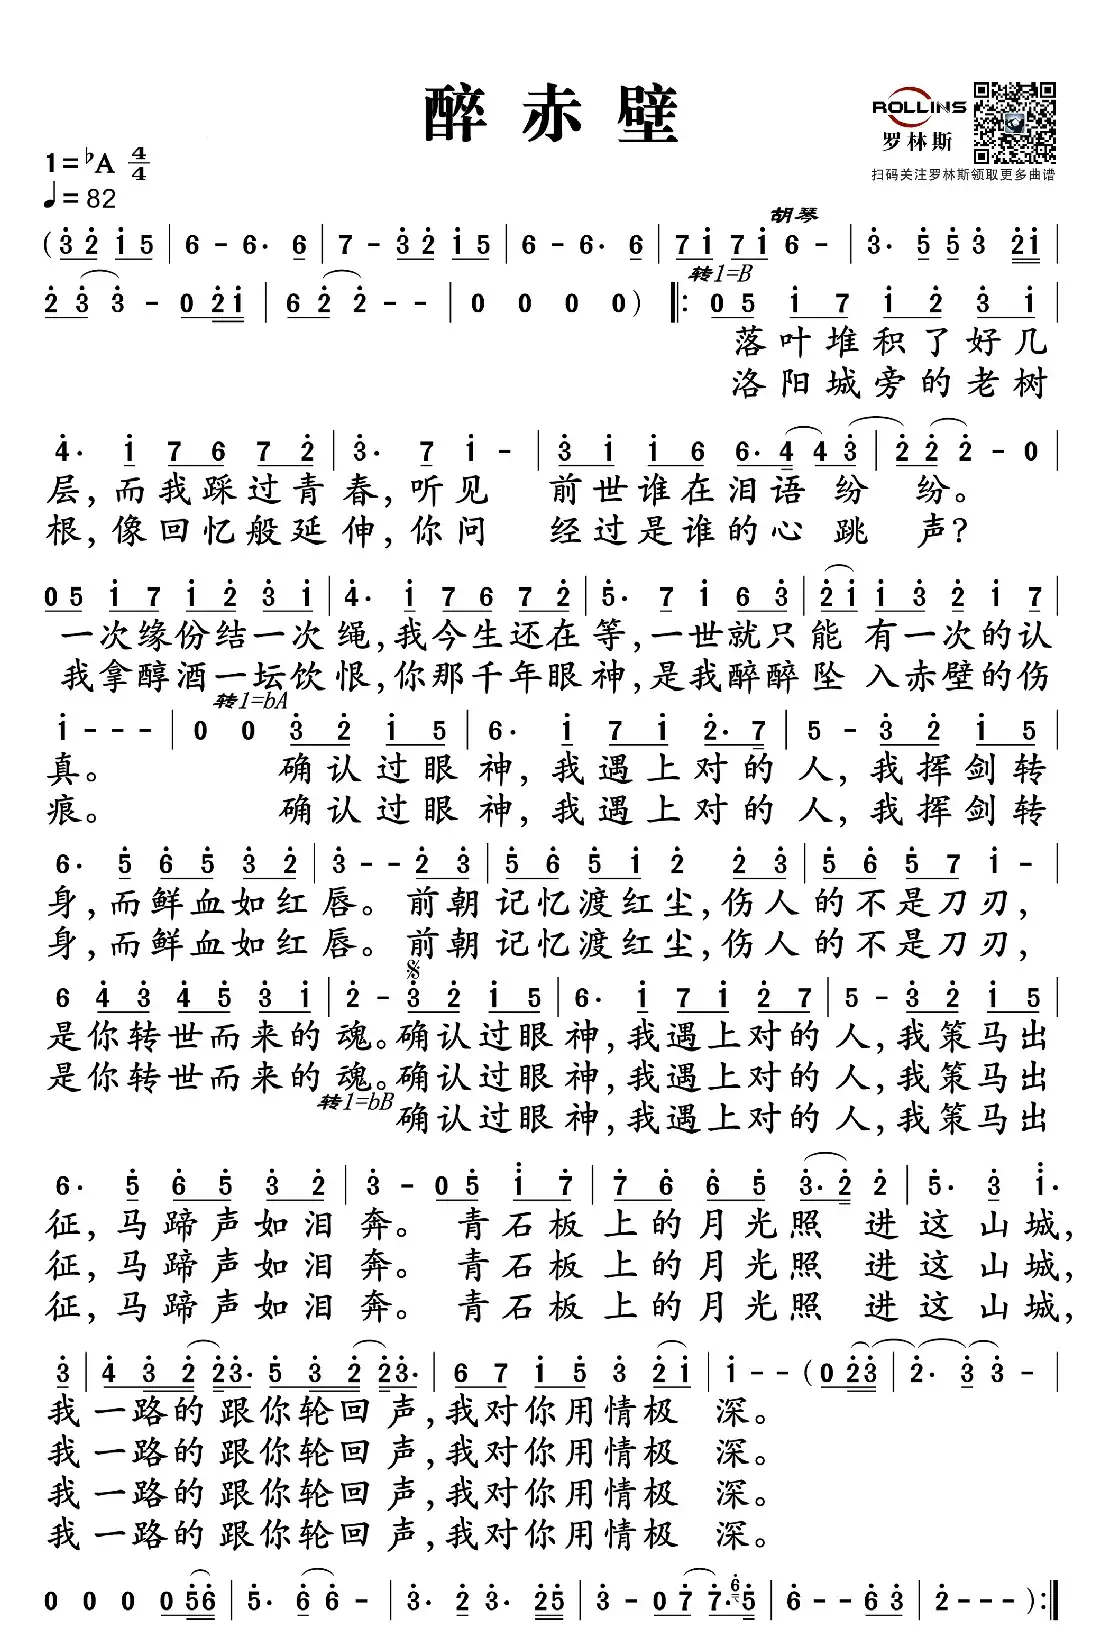 醉赤壁
ROLLINS
罗林斯
扫码关注罗林斯领取更多曲谱
1=♭A 4/4
♩=82
胡琴
(3 2 1 5 | 6 - 6· 6 | 7 - 3 2 1 5 | 6 - 6· 6 | 7 1 7 1 6 - | 3· 5 5 3 2 1 |
转1=B
2 3 3 - 0 2 1 | 6 2 2 - - | 0 0 0 0 ) ‖: 0 5 1 7 1 2 3 1 |
落叶堆积了好几
洛阳城旁的老树
4· 1 7 6 7 2 | 3· 7 1 - | 3 1 1 6 6· 4 4 3 | 2 2 2 - 0 |
层,而我踩过青春,听见 前世谁在泪语纷 纷。
根,像回忆般延伸,你问 经过是谁的心跳 声?
0 5 1 7 1 2 3 1 | 4· 1 7 6 7 2 | 5· 7 1 6 3 | 2 1 1 3 2 1 7 |
一次缘份结一次绳,我今生还在等,一世就只能 有一次的认
我拿醇酒一坛饮恨,你那千年眼神,是我醉醉坠 入赤壁的伤
转1=bA
1 - - - | 0 0 3 2 1 5 | 6· 1 7 1 2· 7 | 5 - 3 2 1 5 |
真。 确认过眼神,我遇上对的人,我挥剑转
痕。 确认过眼神,我遇上对的人,我挥剑转
6· 5 6 5 3 2 | 3 - - 2 3 | 5 6 5 1 2 2 3 | 5 6 5 7 1 - |
身,而鲜血如红唇。前朝记忆渡红尘,伤人的不是刀刃,
身,而鲜血如红唇。前朝记忆渡红尘,伤人的不是刀刃,
6 4 3 4 5 3 1 | 2 - 3 2 1 5 | 6· 1 7 1 2 7 | 5 - 3 2 1 5 |
是你转世而来的魂。确认过眼神,我遇上对的人,我策马出
是你转世而来的魂。确认过眼神,我遇上对的人,我策马出
转1=bB
确认过眼神,我遇上对的人,我策马出
6· 5 6 5 3 2 | 3 - 0 5 1 7 | 7 6 6 5 3· 2 2 | 5· 3 1·
征,马蹄声如泪奔。 青石板上的月光照 进这山城,
征,马蹄声如泪奔。 青石板上的月光照 进这山城,
征,马蹄声如泪奔。 青石板上的月光照 进这山城,
3 | 4 3 2 2 3· 5 3 2 2 3· | 6 7 1 5 3 2 1 | 1 - - (0 2 3 | 2· 3 3 - |
我一路的跟你轮回声,我对你用情极 深。
我一路的跟你轮回声,我对你用情极 深。
我一路的跟你轮回声,我对你用情极 深。
我一路的跟你轮回声,我对你用情极 深。
0 0 0 0 5 6 | 5· 6 6 - | 3· 2 3· 2 5 | 3 - 0 7 7· 6 5 | 6 - - 6 3 | 2 - - - ) :‖